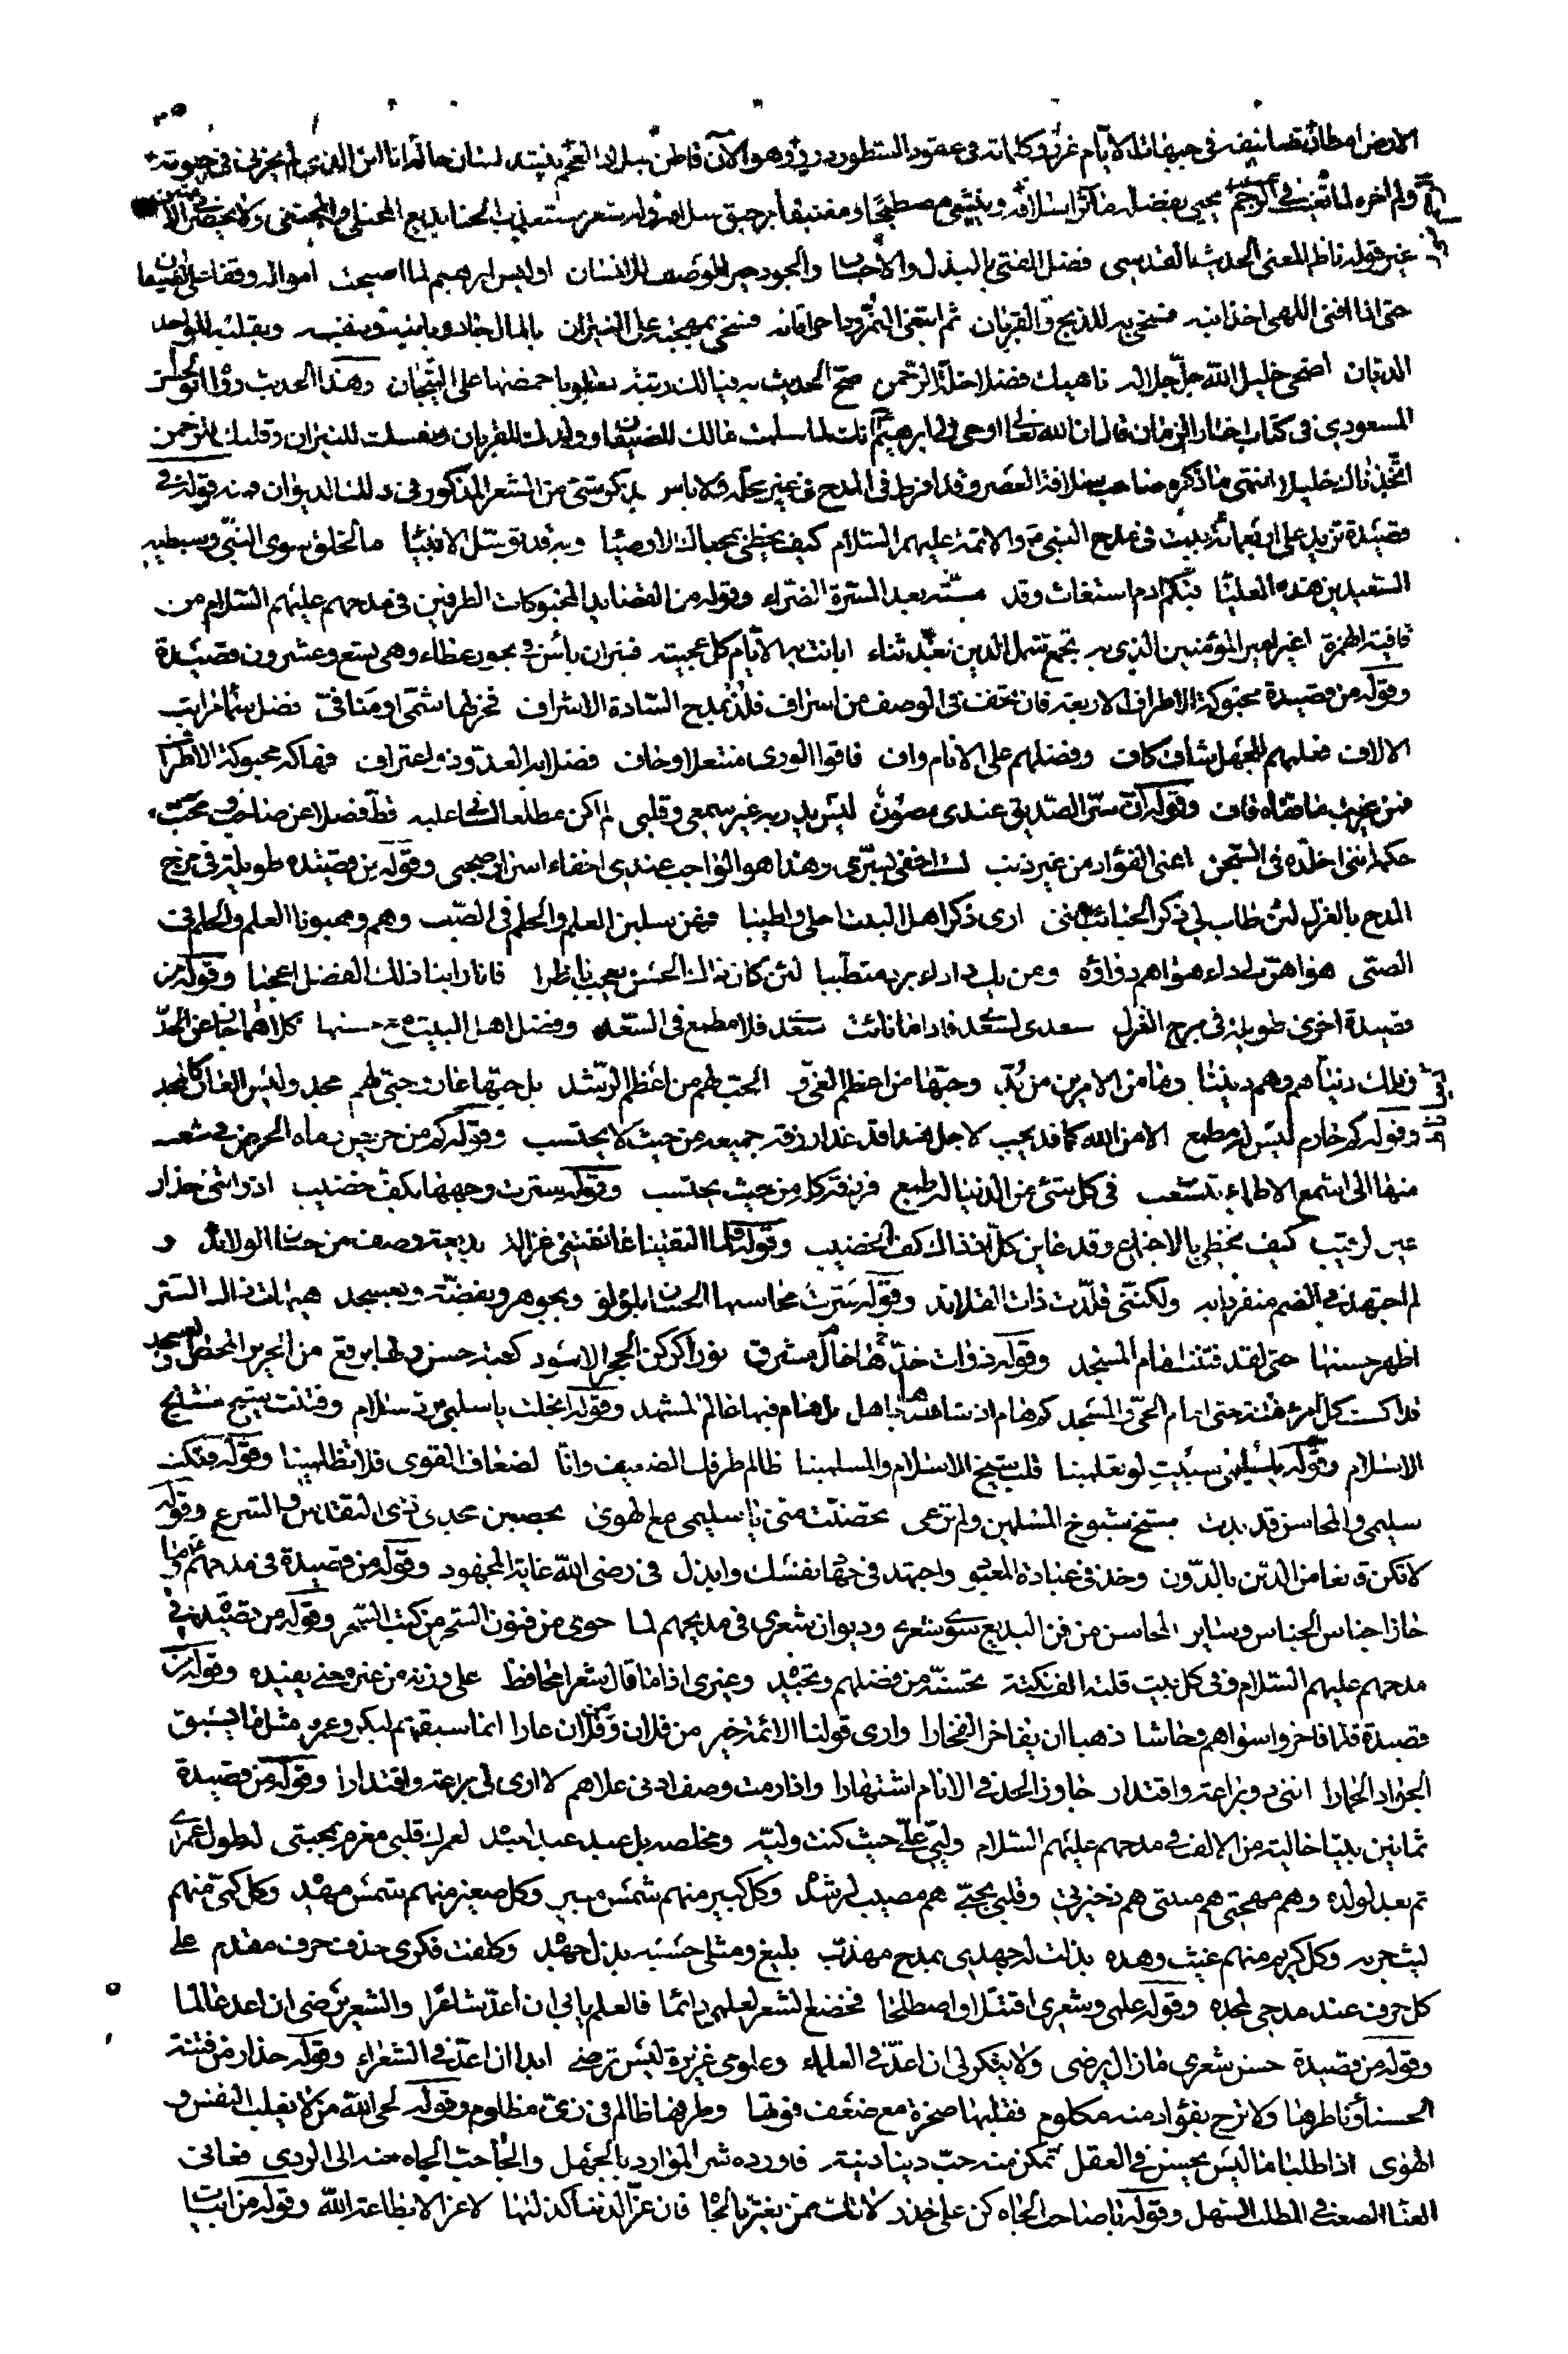 الارض امطار تصانيف في جبهات الايام غرر وكلماته في عقود السطور درر وهو الآن قاطن ببلاد العجم ينشد لسان حاله انا ابن الذي لم يخزني في حيوته
ولم اخزه لما تغيب في الرجم يحيي بفضله مآثر اسلافه وينتشي مصطبحا ومغتبقا برحيق سلافه وله شعر مستعذب الجنا بديع المجتلى والمجتنى ولا يحضرني الآن
غير قوله ناظما لمعنى الحديث القدسي فضل الفتى بالبذل والاحسان والجود خير الوصف للانسان اوليس ابراهيم لما اصبحت امواله وقفا على الضيفان
حتى اذا افنى اللهى اخذ ابنه فسخى به للذبح والقربان ثم ابتغى النمرود احراقا له فسخى بمهجته على النيران بالمال جاد وبابنه وبنفسه وبقلبه للواحد
الديان اضحى خليل الله جل جلاله ناهيك فضلا خلة الرحمن صح الحديث به فيالك رتبة تعلو باخمصها على التيجان وهذا الحديث رواه ابو الحسن
المسعودي في كتاب اخبار الزمان قال ان الله تعالى اوحى الى ابرهيم انك لما سلمت مالك للضيفان وولدك للقربان ونفسك للنيران وقلبك للرحمن
اتخذناك خليلا انتهى ما ذكره صاحب سلافة العصر وقد افرط في المدح في غير محله ولا باس بذكر شئ من الشعر المذكور في ذلك الديوان فمنه قوله في
قصيدة تزيد على اربعمائة بيت في مدح النبي ص والائمة عليهم السلام كيف يحظى بمجدك الاوصيا وبه قد توسل الانبيا ما لخلق سوى النبي وسبطيه
السعيدين هذه العليا فبكم ادم استغاث وقد مسته بعد المسرة الضراء وقوله من القصايد المحبوكات الطرفين في مدحهم عليهم السلام من
قافية الهمزة اغير امير المؤمنين الذي به تجمع شمل الدين بعد ثناء ابانت به الايام كل عجيبة فنيران بأس في بحور عطاء وهي تسع وعشرون قصيدة
وقوله من قصيدة محبوكة الاطراف الاربعة فان تخف في الوصف من اسراف فلذ بمدح السادة الاشراف فخر لهاشمي او منافي فضل سما مراتب
الالاف فعلمهم للجهل شاف كاف وفضلهم على الانام واف فاقوا الورى منتعلا وحاف فضل به العدو ذو اعتراف فهاكه محبوكة الاطراف
فمن غريب ما قفاه قاف وقوله ان سر الصديق عندي مصون ليس يدريه غير سمعي وقلبي لم اكن مطلعا لساني عليه قط فضلا عن صاحب ومحب
حكمه انني اخلده في السجن اعني الفؤاد من غير ذنب لست اخفي لسري وهذا هو الواجب عندي اخفاء اسرار صحبي وقوله من قصيدة طويلة في مزج
المدح بالغزل لئن طاب لي ذكر الحبائب انني ارى ذكر اهل البيت احلى واطيبا فهن سلبن العلم والحلم في الصبا وهم وهبونا العلم والحلم في
الصبى هواهن لي داء هواهم دواؤه ومن يك ذا داء يرد متطببا لئن كان ذاك الحسن يعجب ناظرا فانا راينا ذلك الفضل اعجبا وقوله من
قصيدة اخرى طويلة في مزج الغزل سعدى لسعد فاذا ما نأت سعد فلا مطمع في السعد وفضل اهل البيت مع حسنها كلاهما جازا عن الحد
فتلك دنيا هم وهم ديننا وما من الامرين من بد وحبها من اعظم الغي والحب لهم من اعظم الرشد بل حبها عار وحبي لهم مجد وليس العار كالمجد
وقوله كم خادم ليس له مطمع الا من الله كما قد يجب لاجل هذا قد غدا رزقه جميعه من حيث لا يحتسب وقوله كم من حريص رماه الحرص في شعب
منها الى اشمع الاطماع تنشعب في كل شئ من الدنيا له طمع فرزقه كل من حيث يحتسب وقوله سترت وجهها بكف خضيب اذ راتني حذار
عين لرقيب كيف نحظى بالاجتماع وقد عاين كل اذ ذاك كف الخضيب وقوله فلما التقينا عانقتني غزالة بديعة وصف من حسان الولائد و
لم اجتهد في الضم منفردا به ولكنني قلدت ذات القلائد وقوله سترت محاسنها الحسان بلؤلؤ وبجوهر وبفضة وبعسجد هيهات ذاك الستر
اظهر حسنها حتى لقد فتنت امام المسجد وقوله وذات خد لها خال مشرق نورا كركن الحجر الاسود كعبة حسن ولها برقع من الحرير المحض والعسجد
قد اكست كل امرء فتنة حتى امام الحي والمسجد كم هام اذ شاهدها جاهل بل هام فيها عالم المشهد وقوله ابخلت يا سلمى برد سلام وفتنت شيخ مشايخ
الاسلام وقوله يا سليمى سبيت لو تعلمينا قلب شيخ الاسلام والمسلمينا ظالم طرفك الضعيف وانا لضعاف القوى فلا تظلمينا وقوله فتكت
سليمى والمحاسن قد بدت بشيخ شيوخ المسلمين ولم ترعى تحصنت مني يا سليمى مع الهوى بحصين مجدي ذي التقدس والشرع وقوله
لا تكن قانعا من الدين بالدون وخذ في عبادة المعبود واجتهد في جهاد نفسك وابذل في رضى الله غاية المجهود وقوله من قصيدة في مدحهم ع وما
حاز اجناس الجناس وسائر المحاسن من فن البديع سوى شعري وديوان شعري في مديحهم لما حوى من فنون السحر من كتب السحر وقوله من قصيدة في
مدحهم عليهم السلام وفي كل بيت قلته الف نكتة تحسنه من فضلهم وتجيد وغيري اذا ما قال شعرا محافظ على وزنه من غير معنى يفيده وقوله من
قصيدة فلما فاخروا سواهم وحاشا ذهبا ان يفاخر الفخارا وارى قولنا الائمة خير من فلان ومن فلان عارا انما سبقهم لبكر وعمرو مثل ما يسبق
الجواد الحمارا انني ذو براعة واقتدار جاوز الحد في الانام اشتهارا واذا رمت وصف ادنى علاهم لا ارى لي براعة واقتدارا وقوله من قصيدة
ثمانين بيتا خالية من الالف في مدحهم عليهم السلام وليي علي حيث كنت وليه ومخلصه بل عبد عبد لعبده لعمرك قلبي مغرم بمحبتي له طول عمري
ثم بعد لولده وهم مهجتي هم منيتي هم ذخيرتي وقلبي بحبهم مصيب لرشده وكل كبير منهم شمس منبر وكل صغير منهم شمس مهده وكل كمي منهم
ليث حربه وكل كريم منهم غيث وهده بذلت له جهدي بمدح مهذب بليغ ومثلي حسبه بذل جهده وكلفت فكري حذف حرف مقدم على
كل حرف عند مدحي لمجده وقوله علمي وشعري اقتتلا واصطلحا فخضع الشعر لعلمي راغما فالعلم يابى ان اعد شاعرا والشعر يرضى ان اعد عالما
وقوله من قصيدة حسن شعري ما زال يرضى ولا ينكر لي ان اعد في العلماء وعلومي غزيرة ليس ترضى ابدا ان اعد في الشعراء وقوله حذار من فتنة
الحسنا وناظرها ولا ترح بفؤاد منه مكلوم فقلبها صخرة مع ضعف قوتها وطرفها ظالم في زي مظلوم وقوله لحى الله من لا يغلب النفس و
الهوى اذا طلبا ما ليس يحسن في العقل تمكن منه حب دنيا دنية فاورده شر الموارد بالجهل والجاه حب الجاه منه الى الردى فعانى
العنا الصعب في المطلب السهل وقوله يا صاحب الجاه كن على حذر لا تك ممن يغتر بالجاه فان عز الدنيا كذلتها لا عز الا بطاعة الله وقوله من ابيات